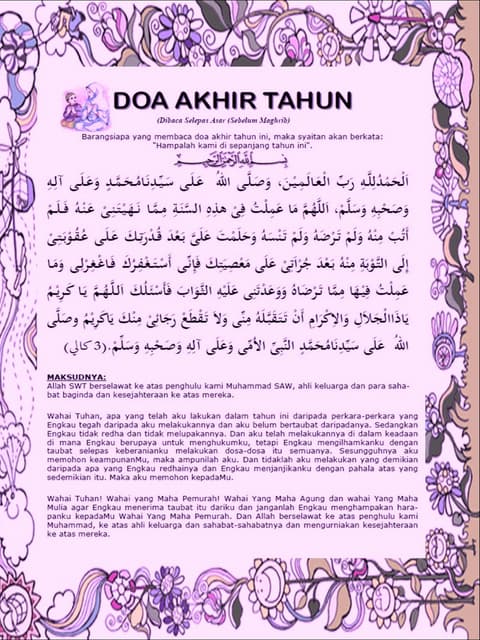 DOA AKHIR TAHUN
(Dibaca Selepas Asar (Sebelum Maghrib)
Barangsiapa yang membaca doa akhir tahun ini, maka syaitan akan berkata:
"Hampalah kami di sepanjang tahun ini".
بسم الله الرحمن الرحيم
اَلْحَمْدُلِلَّهِ رَبِّ الْعَالَمِيْنَ، وَصَلَّى اللهُ عَلَى سَيِّدِنَامُحَمَّدٍ وَعَلَى آلِهِ
وَصَحْبِهِ وَسَلَّمْ، اَللَّهُمَّ مَا عَمِلْتُ فِىْ هذِهِ السَّنَةِ مِمَّا نَهَيْتَنِىْ عَنْهُ فَلَمْ
أَتُبْ مِنْهُ وَلَمْ تَرْضَهُ وَلَمْ تَنْسَهُ وَحَلِمْتَ عَلَىَّ بَعْدَ قُدْرَتِكَ عَلَى عُقُوْبَتِىْ
إِلَى التَّوْبَةِ مِنْهُ بَعْدَ جُرْاَتِىْ عَلَى مَعْصِيَتِكَ فَإِنِّى أَسْتَغْفِرُكَ فَاغْفِرْلِى وَمَا
عَمِلْتُ فِيْهَا مِمَّا تَرْضَاهُ وَوَعَدْتَنِى عَلَيْهِ الثَّوَابَ فَأَسْئَلُكَ اَللَّهُمَّ يَا كَرِيْمُ
يَاذَاالْجَلاَلِ وَالاِكْرَامِ أَنْ تَتَقَبَّلَهُ مِنِّى وَلاَ تَقْطَعْ رَجَائِىْ مِنْكَ يَاكَرِيْمُ وصَلَّى
اللهُ عَلَى سَيِّدِنَامُحَمَّدٍ النَّبِيِّ الأُمِّى وَعَلَى آلِهِ وَصَحْبِهِ وَسَلَّمْ.(3 كالي)
MAKSUDNYA:
Allah SWT berselawat ke atas penghulu kami Muhammad SAW, ahli keluarga dan para saha-
bat baginda dan kesejahteraan ke atas mereka.
Wahai Tuhan, apa yang telah aku lakukan dalam tahun ini daripada perkara-perkara yang
Engkau tegah daripada aku melakukannya dan aku belum bertaubat daripadanya. Sedangkan
Engkau tidak redha dan tidak melupakannya. Dan aku telah melakukannya di dalam keadaan
di mana Engkau berupaya untuk menghukumku, tetapi Engkau mengilhamkanku dengan
taubat selepas keberanianku melakukan dosa-dosa itu semuanya. Sesungguhnya aku
memohon keampunanMu, maka ampunilah aku. Dan tidaklah aku melakukan yang demikian
daripada apa yang Engkau redhainya dan Engkau menjanjikanku dengan pahala atas yang
sedemikian itu. Maka aku memohon kepadaMu.
Wahai Tuhan! Wahai yang Maha Pemurah! Wahai Yang Maha Agung dan wahai Yang Maha
Mulia agar Engkau menerima taubat itu dariku dan janganlah Engkau menghampakan hara-
panku kepadaMu Wahai Yang Maha Pemurah. Dan Allah berselawat ke atas penghulu kami
Muhammad, ke atas ahli keluarga dan sahabat-sahabatnya dan mengurniakan kesejahteraan
ke atas mereka.